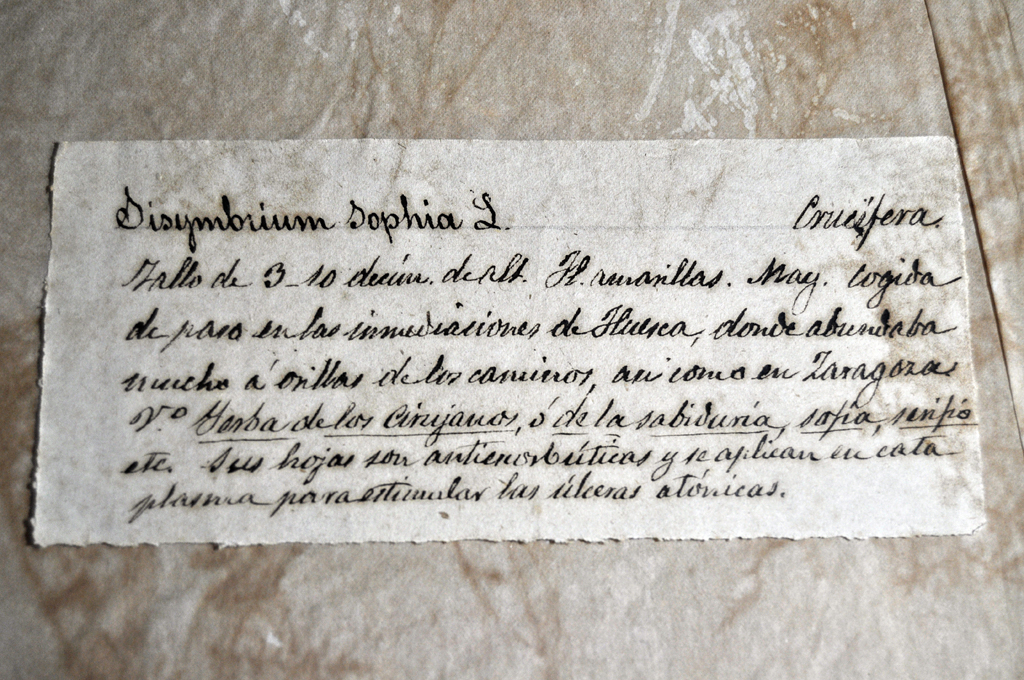 Sisymbrium Sophia L. Crucifera.
Tallo de 3-10 decím. de alt. Fl. amarillas. May. Cogida
de paso en las inmediaciones de Huesca, donde abundaba
mucho á orillas de los caminos, asi como en Zaragoza.
V.º Yerba de los Cirujanos, ó de la sabiduría, sofia, serifio
etc. Sus hojas son antiescorbúticas y se aplican en cata
plasma para estimular las úlceras atónicas.